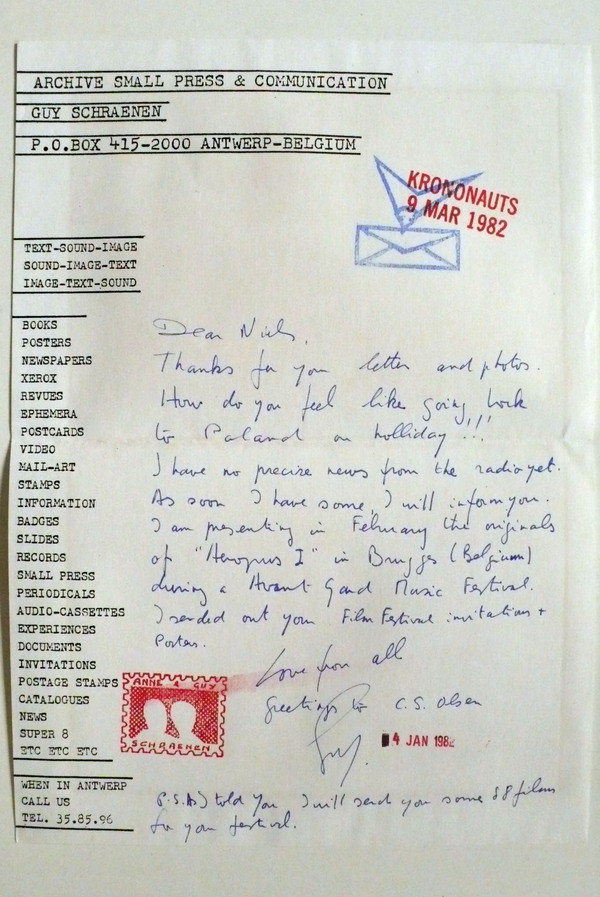 ARCHIVE SMALL PRESS & COMMUNICATION
GUY SCHRAENEN
P.O.BOX 415-2000 ANTWERP-BELGIUM
KRONONAUTS
9 MAR 1982
TEXT-SOUND-IMAGE
SOUND-IMAGE-TEXT
IMAGE-TEXT-SOUND
BOOKS
POSTERS
NEWSPAPERS
XEROX
REVUES
EPHEMERA
POSTCARDS
VIDEO
MAIL-ART
STAMPS
INFORMATION
BADGES
SLIDES
RECORDS
SMALL PRESS
PERIODICALS
AUDIO-CASSETTES
EXPERIENCES
DOCUMENTS
INVITATIONS
POSTAGE STAMPS
CATALOGUES
NEWS
SUPER 8
ETC ETC ETC
WHEN IN ANTWERP
CALL US
TEL. 35.85.96
Dear Niels,
Thanks for your letter and photos.
How do you feel like going back
to Poland on holliday!!!
I have no precise news from the radio yet.
As soon I have some, I will inform you.
I am presenting in February the originals
of "I" in Brugges (Belgium)
during a Avant Gard Music Festival.
I sended out your Film Festival invitations +
Posters.
Love from all
greetings to C.S. Olsen
Guy.
ANNE & GUY
SCHRAENEN
4 JAN 1982
P.S. As I told you I will send you some S8 films
for your festival.